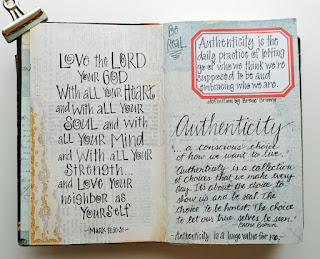 Love the LORD
Your GOD
With all Your Heart
and with all Your
Soul and with
all Your Mind
and With all Your
Strength...
and Love Your
neighbor as
Yourself
~MARK 12:30-31~
Be
Real.
Authenticity is the
daily practice of letting
go of who we think we're
supposed to be and
embracing who we are.
definition by Brene Brown
Authenticity
... a conscious choice
of how we want to live.
Authenticity is a collection
of choices that we make every
day. It's about the choice to
show up and be real. The
choice to be honest. The choice
to let our true selves be seen."
Brene Brown
~Authenticity is a huge value for me,~